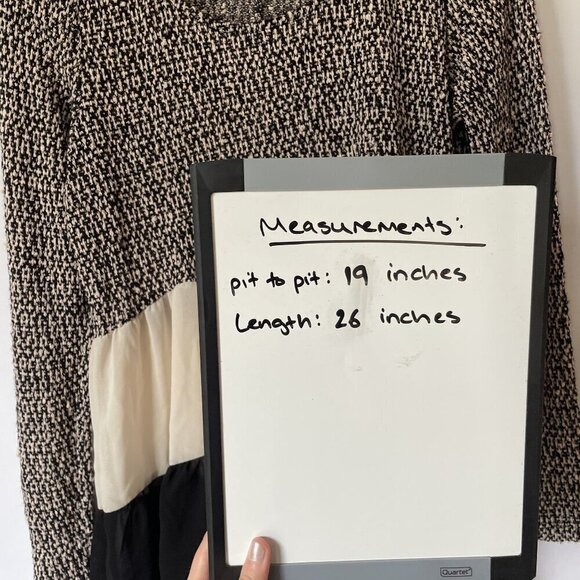 Measurements:
pit to pit: 19 inches
Length: 26 inches
Quartet